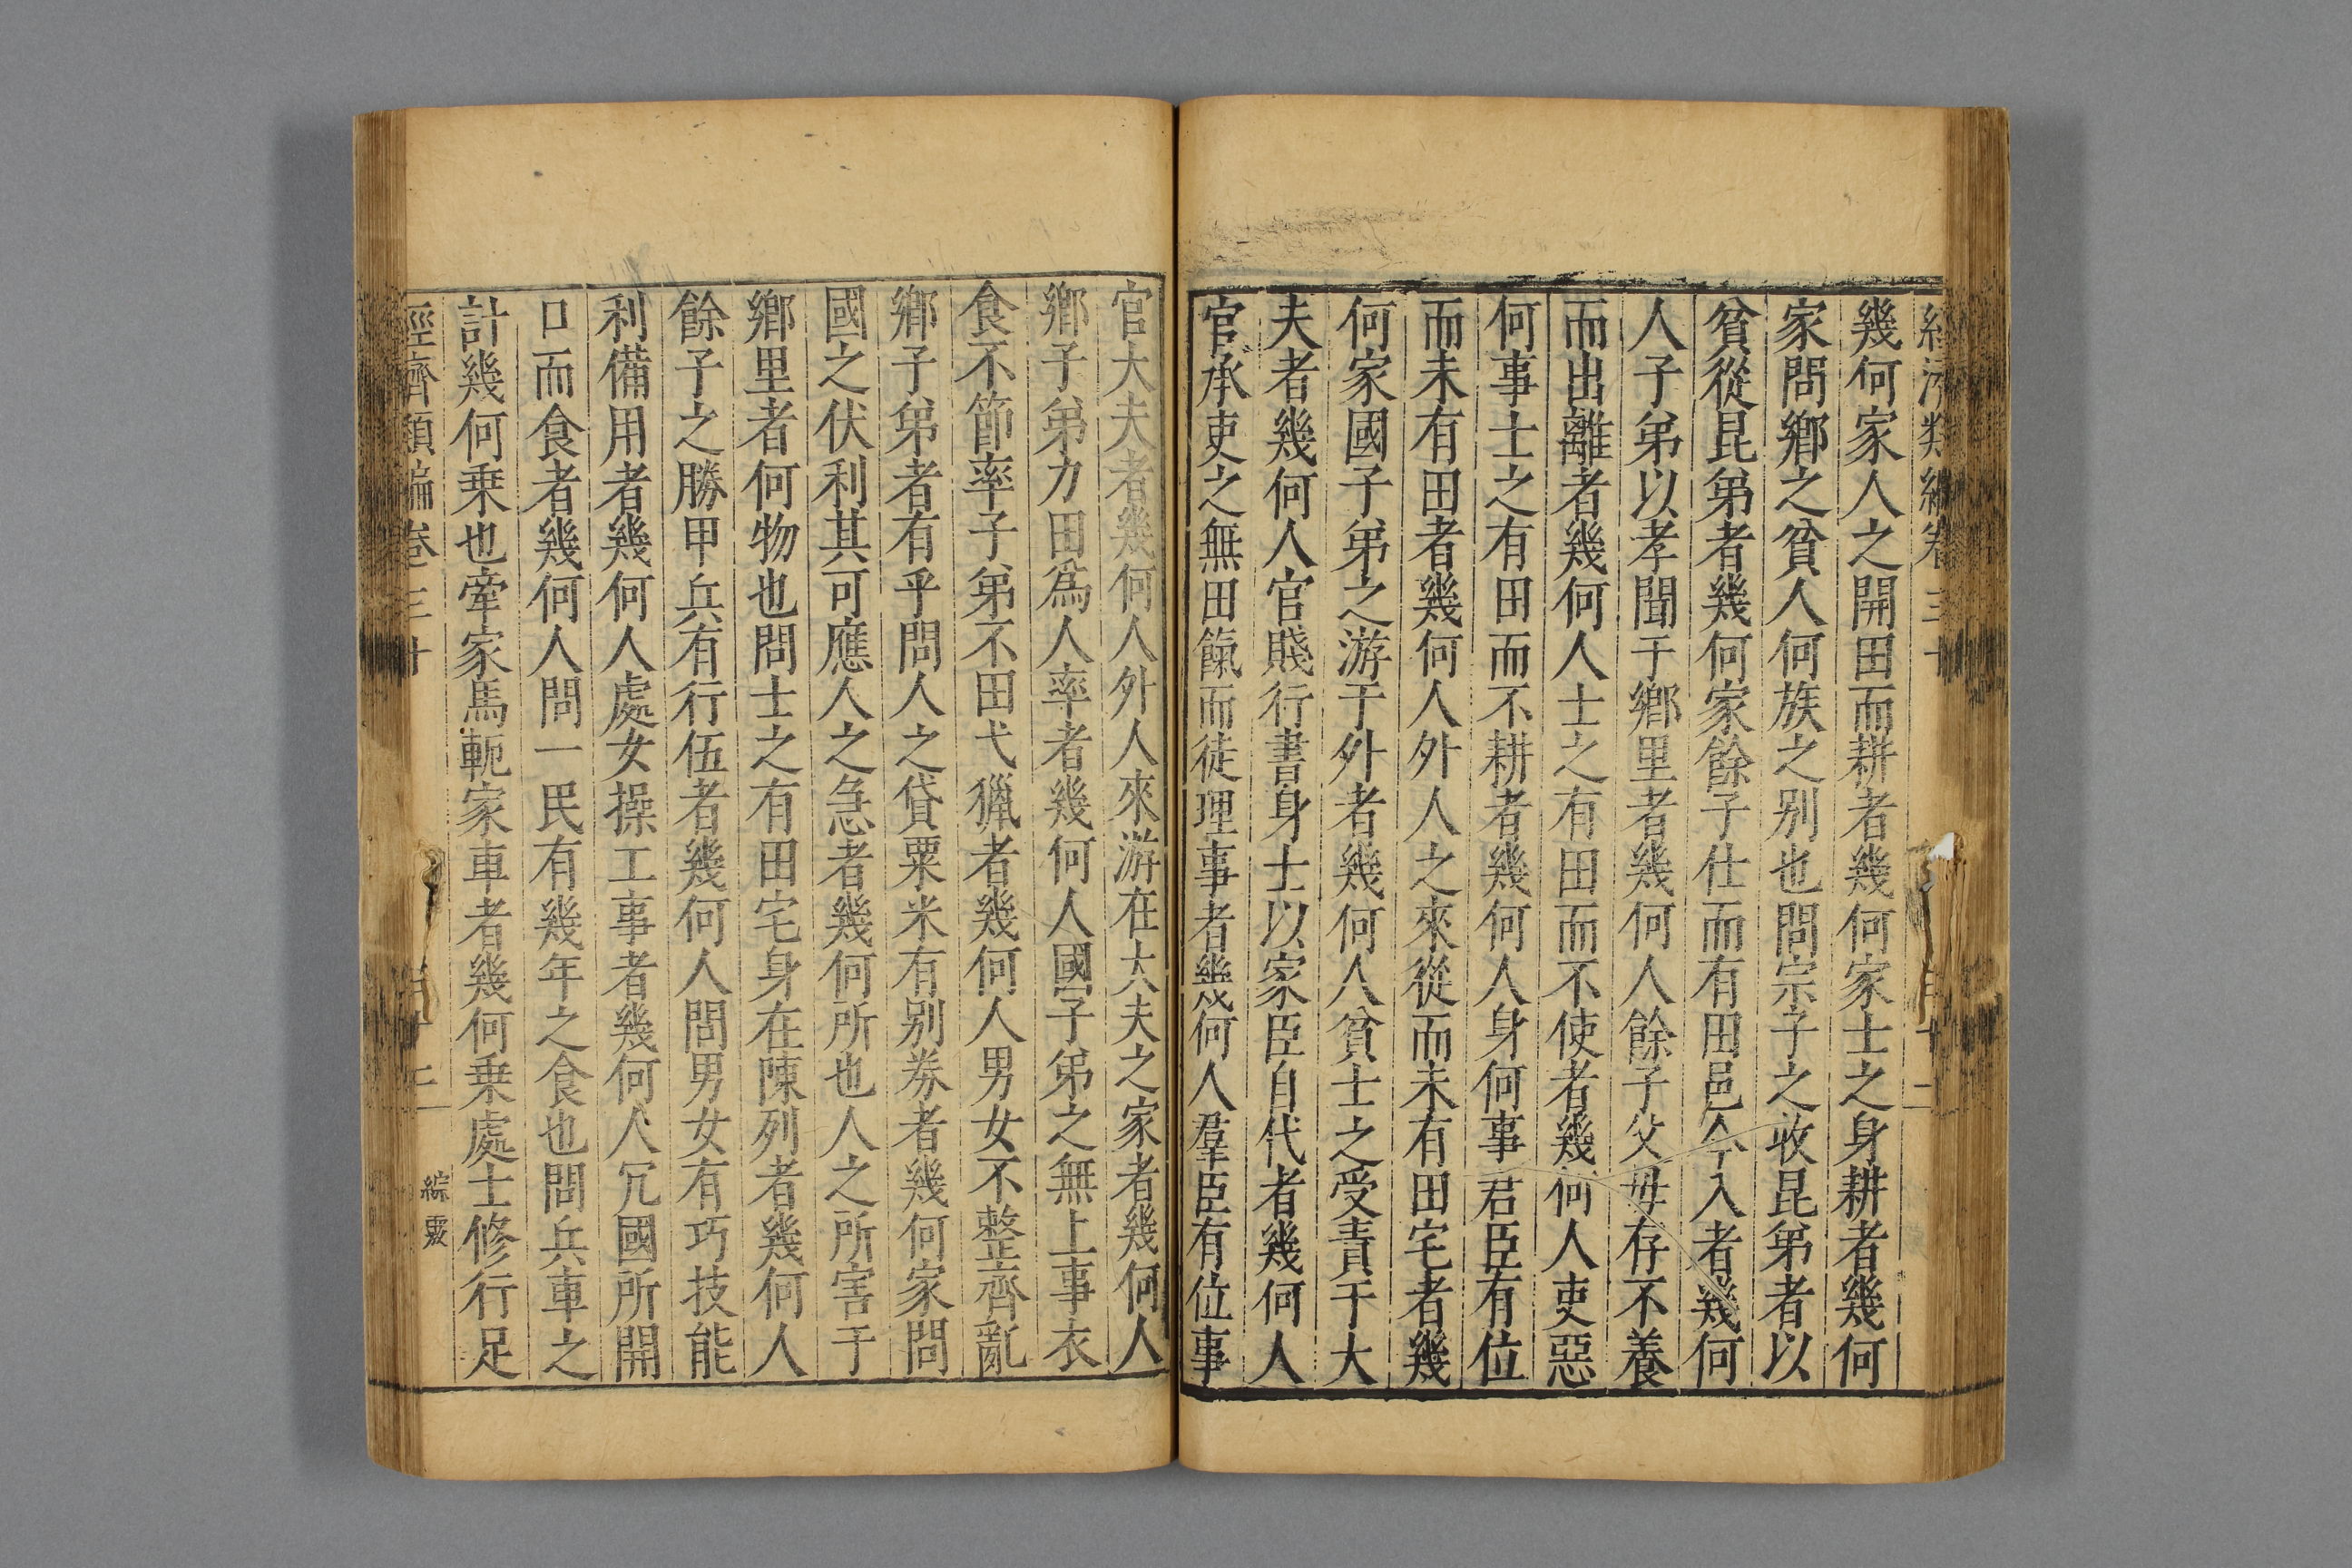 幾何家人之開田而耕者幾何家士之身耕者幾何
家問鄉之貧人何族之别也問宗子之收昆弟者以
貧從昆弟者幾何家餘子仕而有田邑今入者幾何
人子弟以孝聞于鄉里者幾何人餘子父母存不養
而出離者幾何人士之有田而不使者幾何人吏惡
何事士之有田而不耕者幾何人身何事君臣有位
而未有田者幾何人外人之來從而未有田宅者幾
何家國子弟之游于外者幾何人貧士之受責于大
夫者幾何人官賤行書身士以家臣自代者幾何人
官承吏之無田餼而徒理事者幾何人羣臣有位事
官大夫者幾何人外人來游在大夫之家者幾何人
鄉子弟力田爲人率者幾何人國子弟之無上事衣
食不節率子弟不田弋獵者幾何人男女不整齊亂
鄉子弟者有乎問人之貸粟米有别劵者幾何家問
國之伏利其可應人之急者幾何所也人之所害于
鄉里者何物也問士之有田宅身在陳列者幾何人
餘子之勝甲兵有行伍者幾何人問男女有巧技能
利備用者幾何人處女操工事者幾何人冗國所開
口而食者幾何人問一民有幾年之食也問兵車之
計幾何乗也牽家馬軛家車者幾何乗處士修行足
經濟類編卷三十